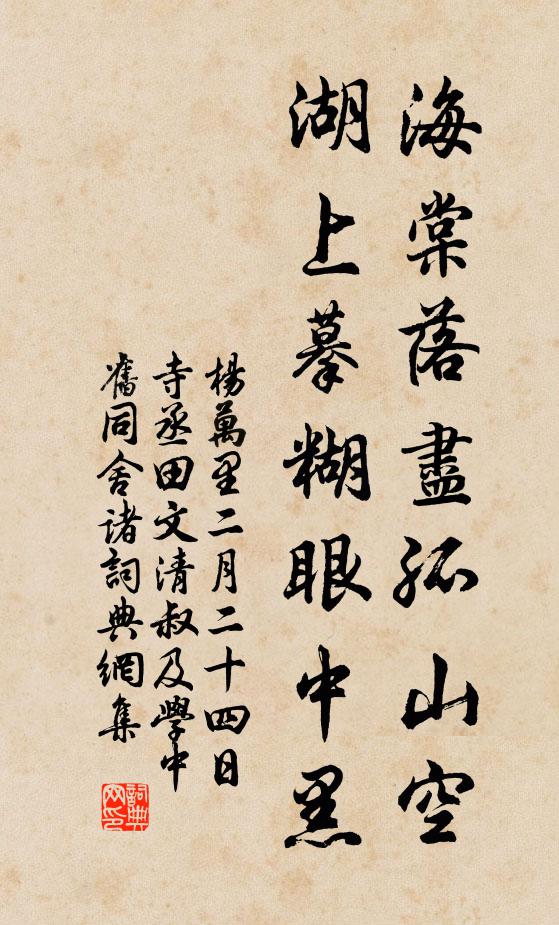 海棠落盡孤山空
湖上摹糊眼中黑
楊萬里二月二十四日
寺丞田文清叔及學中
舊同舍諸詞典網集
詞典
网印